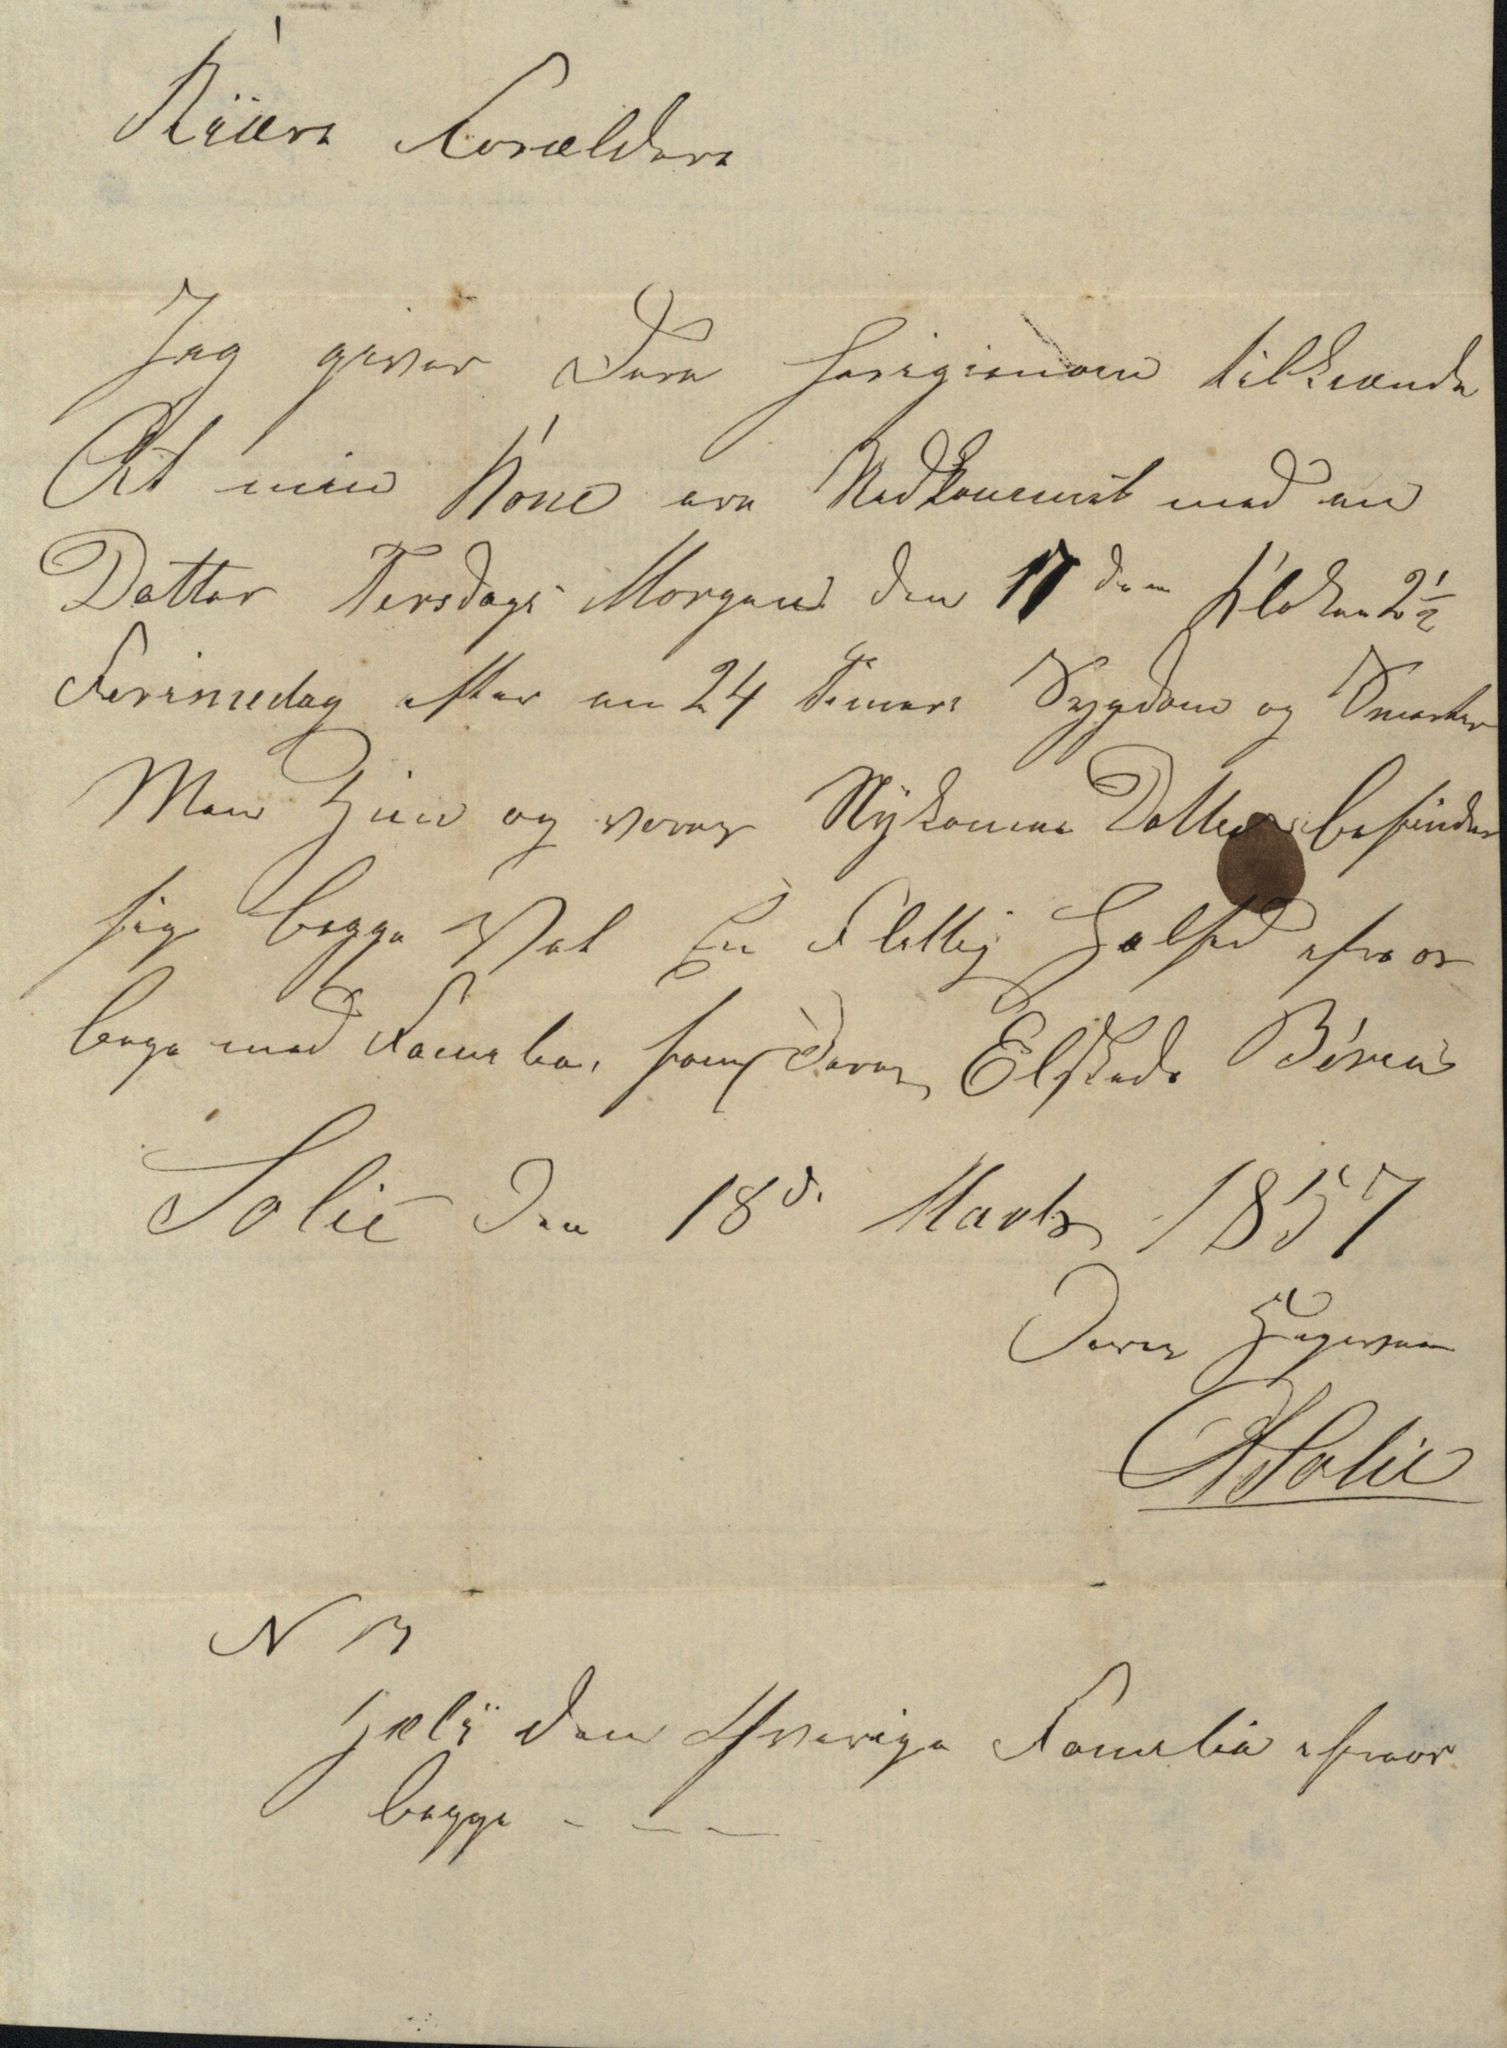 Kiære Forældere
Jeg giver Dere herigienom tilkiænde
At min Kone ere Nedkommet med en
Datter Tirsdags Morgen den 17 den Klokken 2½
Forimedag efter en 24 Timers Sygdom og Smerter
Men hun og vores Nykomne Datter befinder
sig begge Vel En Flittig Helsen ifra os
bege med Famelie, som Deres Elskede Börn
Solie den 18 d. Marts 1857
Deres Hengivne
Solie
N B
Hels den Øverige Famelie ifraos
begge - - -